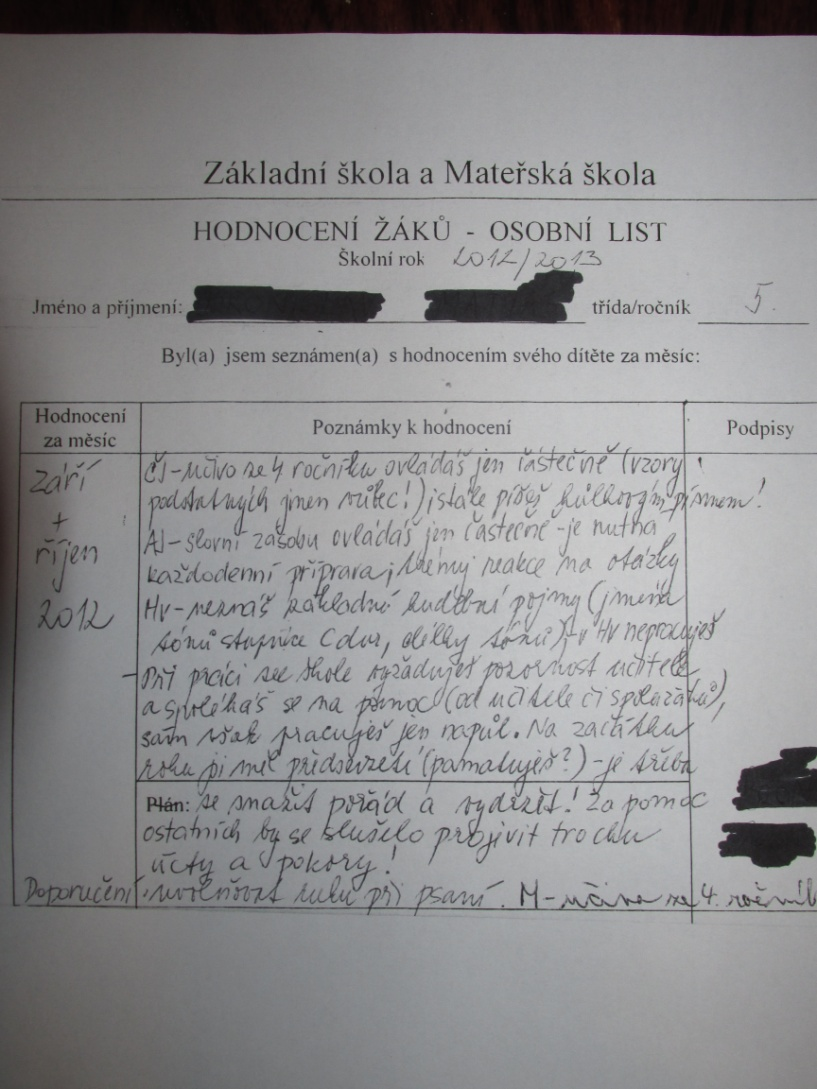 Základní škola a Mateřská škola
HODNOCENÍ ŽÁKŮ - OSOBNÍ LIST
Školní rok 2012/2013
Jméno a příjmení: třída/ročník 5.
Byl(a) jsem seznámen(a) s hodnocením svého dítěte za měsíc:
Hodnocení za měsíc
Poznámky k hodnocení
Podpisy
září
+
říjen
2012
ČJ-učivo ze 4 ročníku ovládáš jen částečně (vzory
podstatných jmen vůbec!), stále píšeš hůlkovým písmem!
AJ-slovní zásobu ovládáš jen částečně - je nutná
každodenní příprava, reakce na otázky
HV-neznáš základní hudební pojmy (jména
tónů stupnice C dur, délky tónů), v HV nepracuješ
- Při práci ve škole vyžaduješ pozornost učitele
a spoléháš se na pomoc (od učitele či spolužáků),
sám však pracuješ jen napůl. Na začátku
roku jsi měl předsevzetí (pamatuješ?) - je třeba
Plán: se snažit pořád a vydržet! Za pomoc
ostatních by se slušelo projevit trochu
úcty a pokory!
Doporučení: uvolňovat ruku při psaní. M-učivo ze 4. ročník